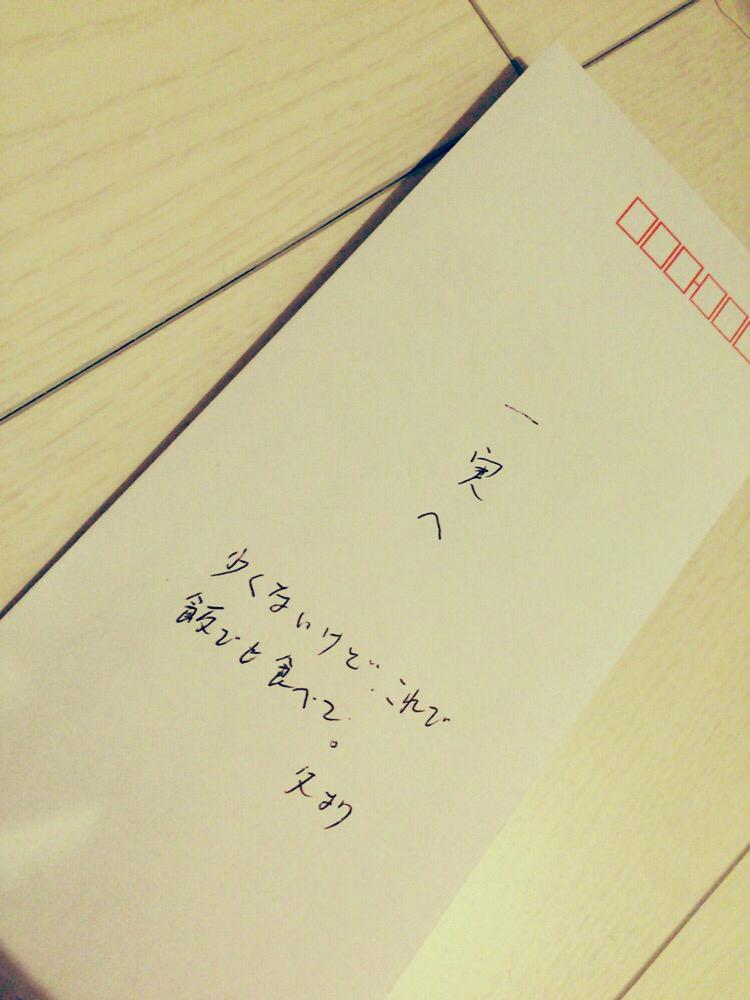 一実へ
多くないけど、これで
飯でも食べて。
父より